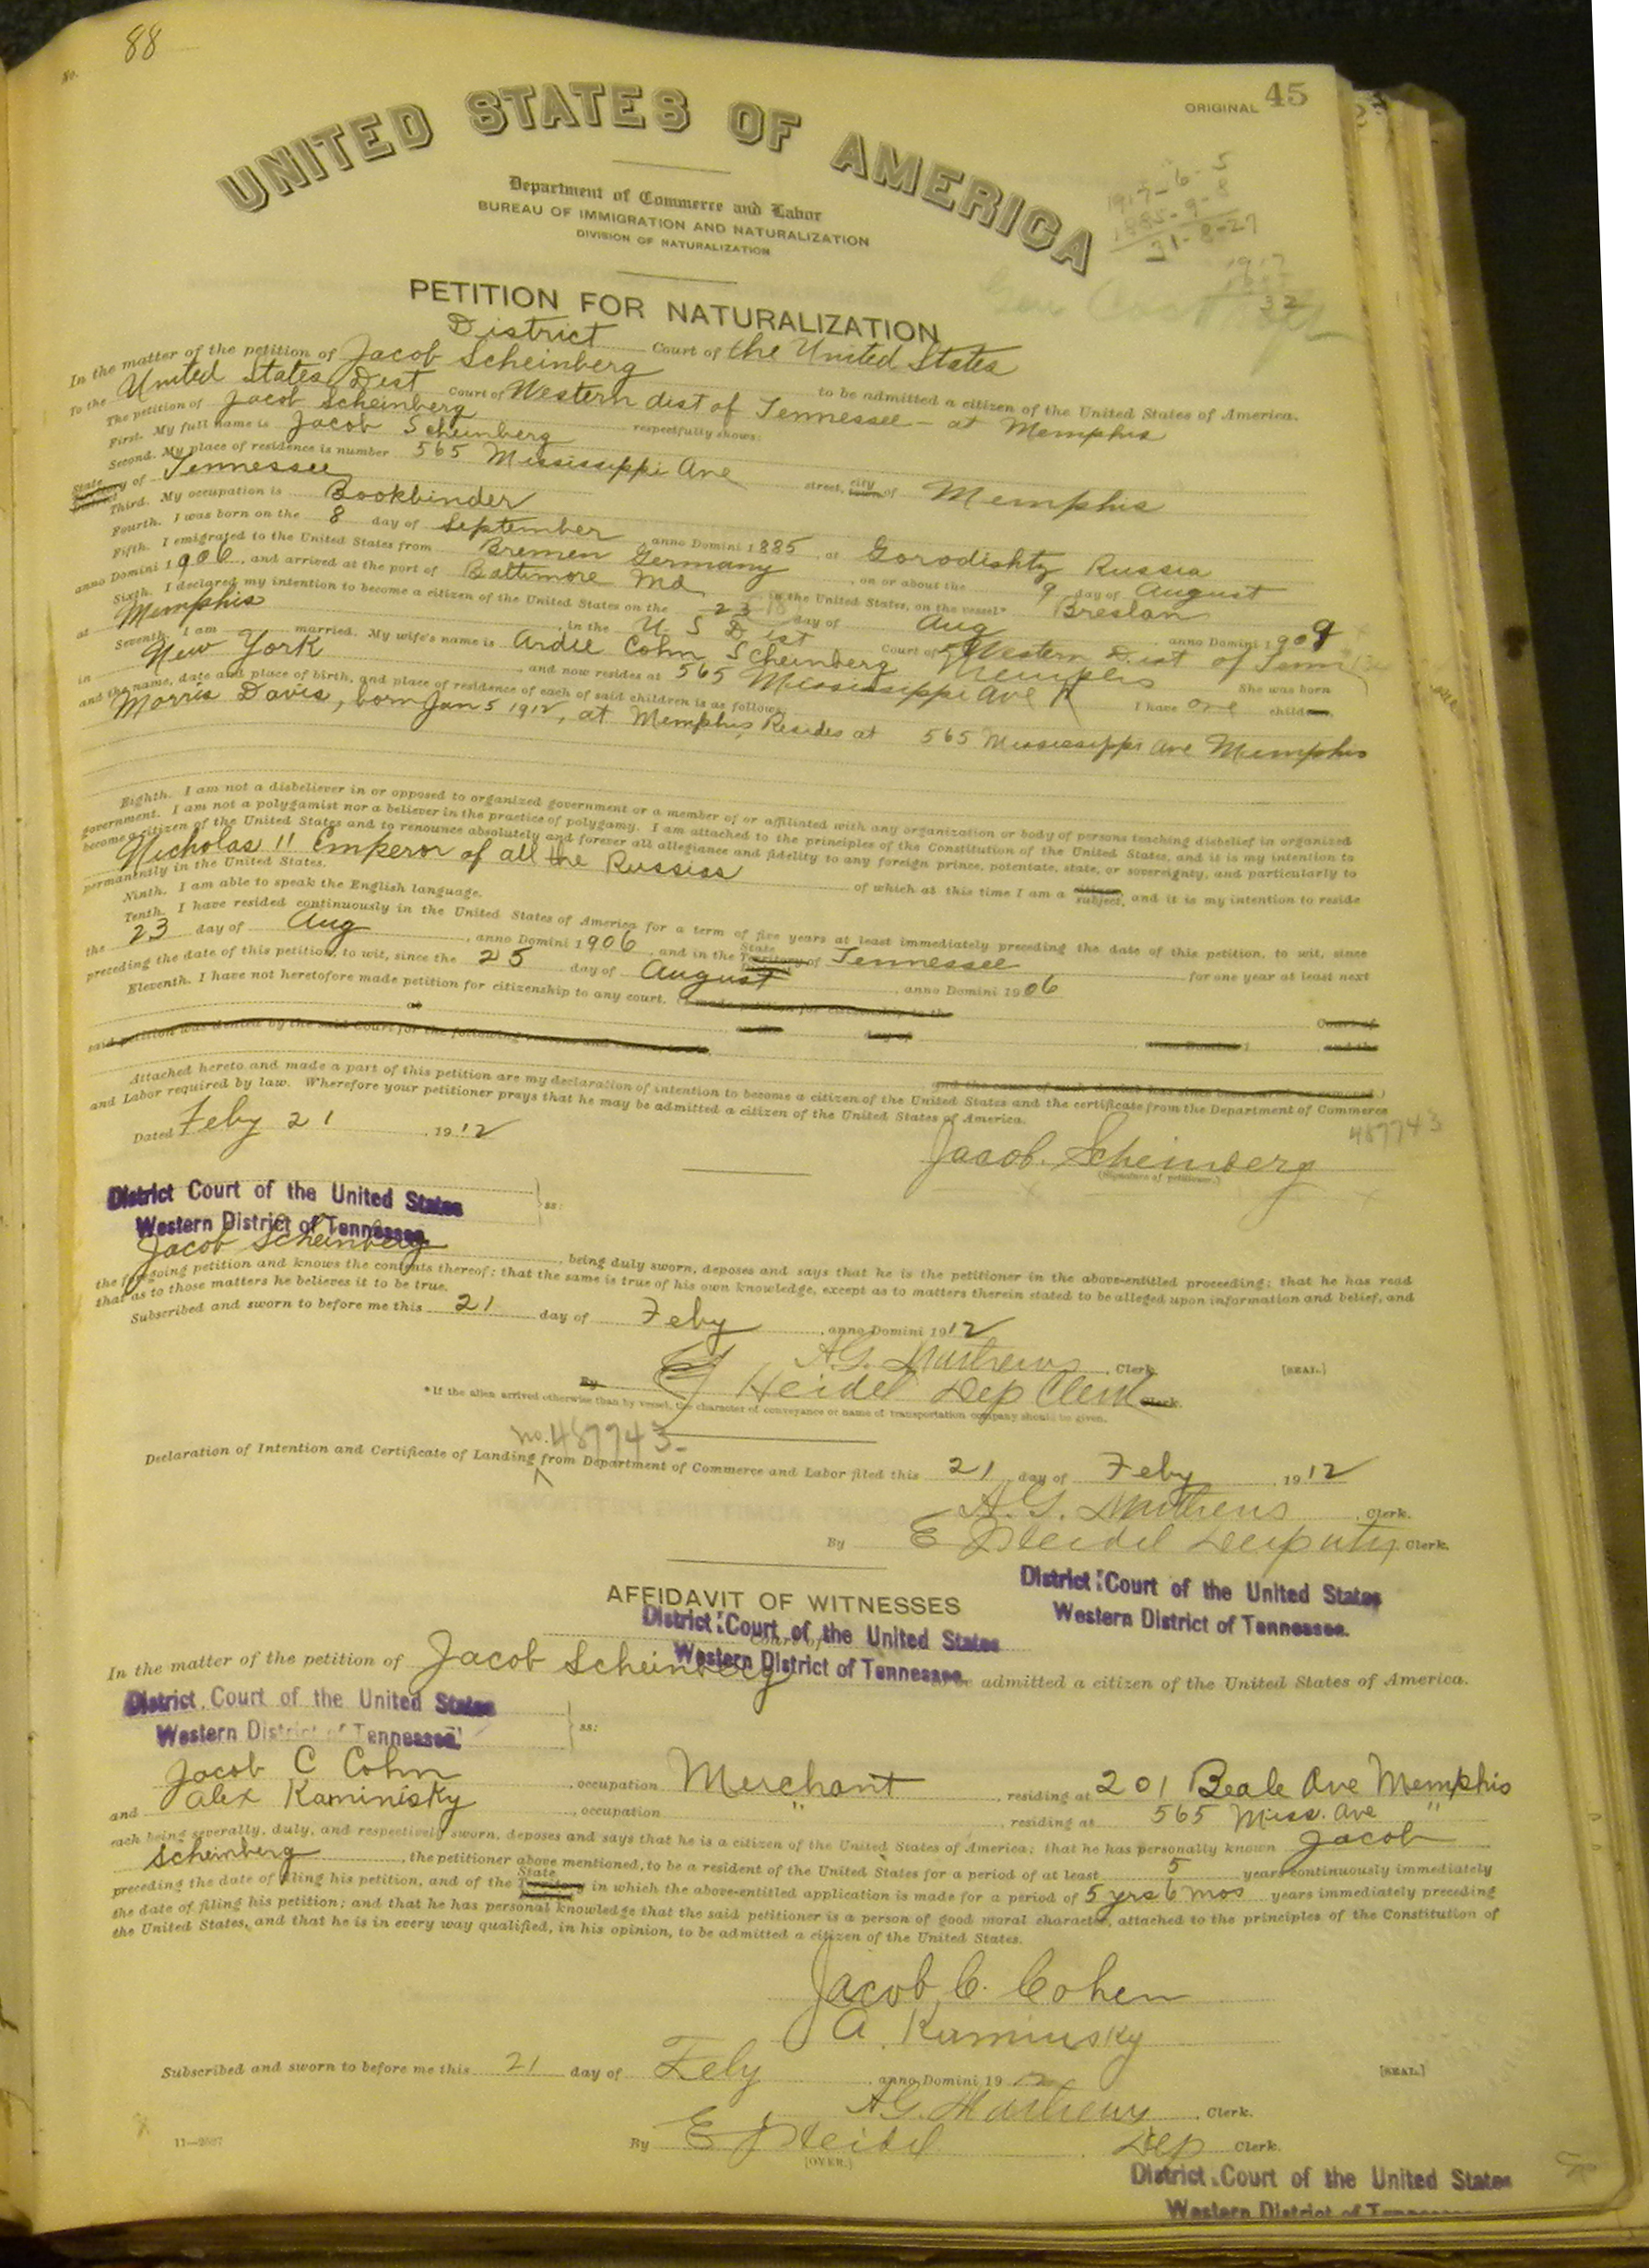 No. 88
ORIGINAL 45
UNITED STATES OF AMERICA
1917-6-5
1885-9-8
31-8-27
1917
32
Department of Commerce and Labor
BUREAU OF IMMIGRATION AND NATURALIZATION
DIVISION OF NATURALIZATION
PETITION FOR NATURALIZATION
District Court of the United States
In the matter of the petition of Jacob Scheinberg to be admitted a citizen of the United States of America.
To the United States Dist Court of Western dist of Tennessee - at Memphis
The petition of Jacob Scheinberg respectfully shows:
First. My full name is Jacob Scheinberg
Second. My place of residence is number 565 Mississippi Ave street, city town of Memphis
State Territory District of Tennessee
Third. My occupation is Bookbinder
Fourth. I was born on the 8 day of September anno Domini 1885, at Gorodishty Russia
Fifth. I emigrated to the United States from Bremen Germany, on or about the 9 day of August
anno Domini 1906, and arrived at the port of Baltimore Md in the United States, on the vessel* Breslau
Sixth. I declared my intention to become a citizen of the United States on the 23 day of Aug anno Domini 1909
at Memphis, in the U S Dist Court of Western Dist of Tenn
Seventh. I am married. My wife's name is Ardie Cohn Scheinberg She was born
in New York, and now resides at 565 Mississippi Ave Memphis I have one children,
and the name, date and place of birth, and place of residence of each of said children is as follows:
Morris Davis, born Jan 5 1912, at Memphis, Resides at 565 Mississippi Ave Memphis
Eighth. I am not a disbeliever in or opposed to organized government or a member of or affiliated with any organization or body of persons teaching disbelief in organized
government. I am not a polygamist nor a believer in the practice of polygamy. I am attached to the principles of the Constitution of the United States, and it is my intention to
become a citizen of the United States and to renounce absolutely and forever all allegiance and fidelity to any foreign prince, potentate, state, or sovereignty, and particularly to
Nicholas II Emperor of all the Russias of which at this time I am a citizen subject, and it is my intention to reside
permanently in the United States.
Ninth. I am able to speak the English language.
Tenth. I have resided continuously in the United States of America for a term of five years at least immediately preceding the date of this petition, to wit, since
the 23 day of Aug, anno Domini 1906, and in the State Territory District of Tennessee for one year at least next
preceding the date of this petition, to wit, since the 25 day of August, anno Domini 1906
Eleventh. I have not heretofore made petition for citizenship to any court. (I made petition for citizenship to the Court of
at on the day of anno Domini 1 and the
said petition was denied by the said Court for the following reasons and causes, to wit,
and the cause of such denial has since been cured or removed.)
Attached hereto and made a part of this petition are my declaration of intention to become a citizen of the United States and the certificate from the Department of Commerce
and Labor required by law. Wherefore your petitioner prays that he may be admitted a citizen of the United States of America.
487743
Dated Feby 21, 1912
Jacob. Scheinberg
(Signature of petitioner.)
District Court of the United States
Western District of Tennessee. ss:
Jacob Scheinberg, being duly sworn, deposes and says that he is the petitioner in the above-entitled proceeding; that he has read
the foregoing petition and knows the contents thereof; that the same is true of his own knowledge, except as to matters therein stated to be alleged upon information and belief, and
that as to those matters he believes it to be true.
Subscribed and sworn to before me this 21 day of Feby, anno Domini 1912
A.G. Mathews, Clerk.
[SEAL.]
By E J Heidel Dep Clerk Clerk.
*If the alien arrived otherwise than by vessel, the character of conveyance or name of transportation company should be given.
No. 487743-
Declaration of Intention and Certificate of Landing from Department of Commerce and Labor filed this 21 day of Feby, 1912
A. G. Mathews, Clerk.
By E J Heidel Deputy Clerk.
District Court of the United States
Western District of Tennessee.
AFFIDAVIT OF WITNESSES
District Court of the United States
Court of
Western District of Tennessee.
In the matter of the petition of Jacob Scheinberg to be admitted a citizen of the United States of America.
District Court of the United States
Western District of Tennessee. ss:
Jacob C Cohn, occupation Merchant, residing at 201 Beale Ave Memphis
and Alex Kaminisky, occupation ", residing at 565 Miss. Ave "
each being severally, duly, and respectively sworn, deposes and says that he is a citizen of the United States of America; that he has personally known Jacob
Scheinberg, the petitioner above mentioned, to be a resident of the United States for a period of at least 5 years continuously immediately
preceding the date of filing his petition, and of the State Territory District in which the above-entitled application is made for a period of 5 yrs 6 mos years immediately preceding
the date of filing his petition; and that he has personal knowledge that the said petitioner is a person of good moral character, attached to the principles of the Constitution of
the United States, and that he is in every way qualified, in his opinion, to be admitted a citizen of the United States.
Jacob C. Cohen
A. Kaminsky
Subscribed and sworn to before me this 21 day of Feby, anno Domini 1912
[SEAL.]
A.G. Mathews, Clerk.
By E J Heidel Dep Clerk.
11-2627
[OVER.]
District Court of the United States
Western District of Tennessee